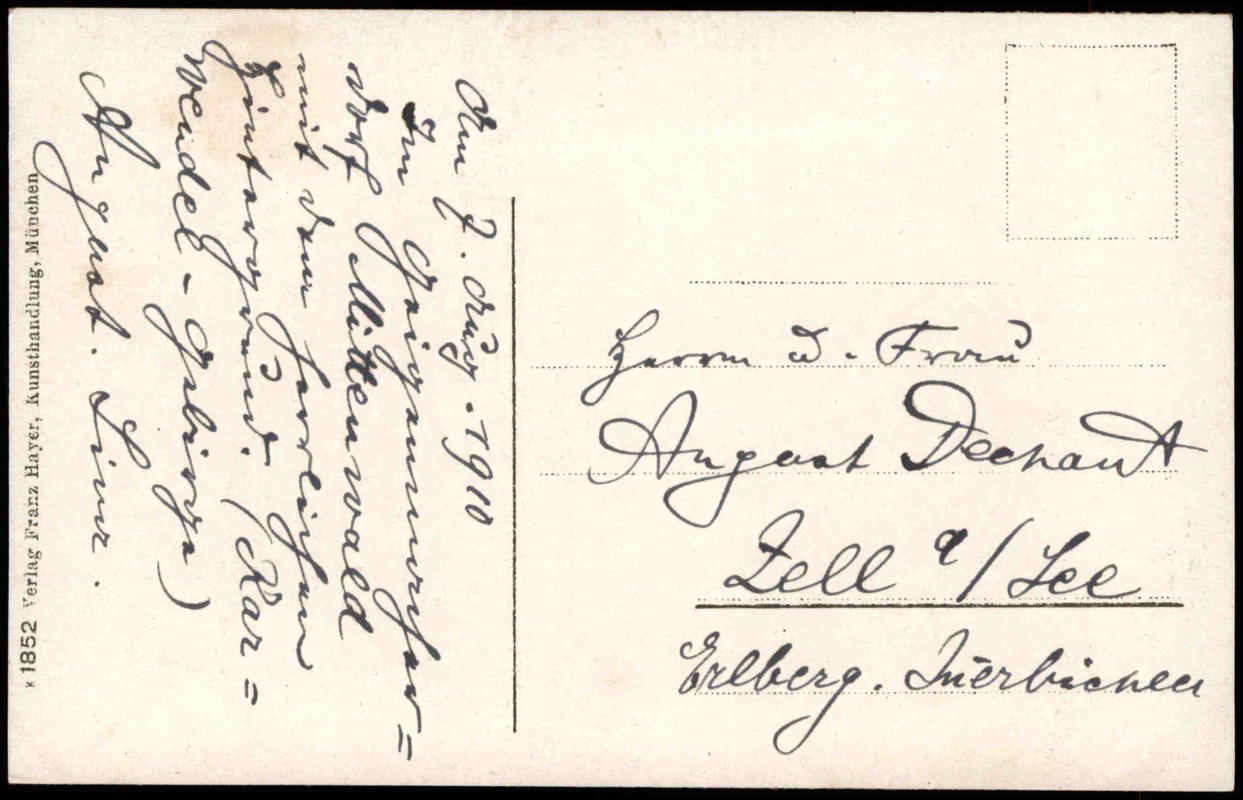 Am 7. Aug. 1910
Im Geigenmacher=
dorf Mittenwald
mit dem herrlichen
Hintergrund. (Kar=
wendel-Gebirge)
August.
K 1852 Verlag Franz Hayer, Kunsthandlung, München
Herrn u. Frau
August Dechant
Zell a/See
Erlberg.